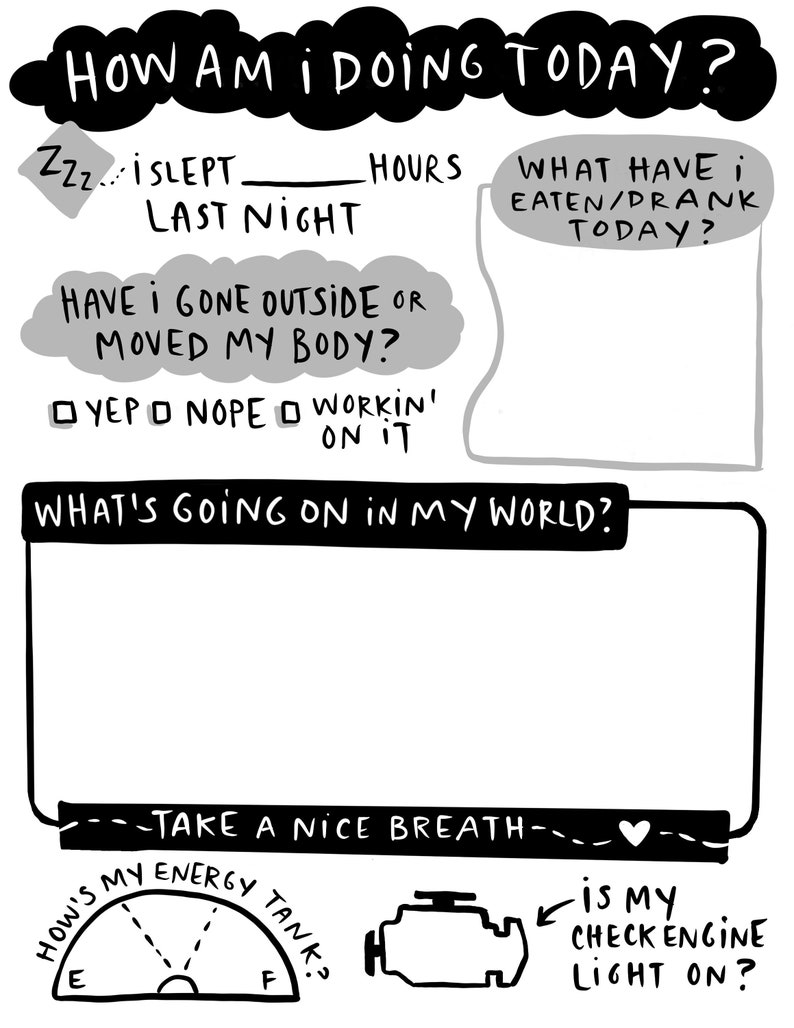 HOW AM i DOiNG TODAY?
ZZZ
i SLEPT ______ HOURS
LAST NiGHT
WHAT HAVE i
EATEN/DRANK
TODAY?
HAVE i GONE OUTSiDE OR
MOVED MY BODY?
YEP NOPE WORKiN'
ON iT
WHAT'S GOiNG ON iN MY WORLD?
TAKE A NiCE BREATH
HOW'S MY ENERGY TANK?
E F
iS MY
CHECK ENGiNE
LiGHT ON?